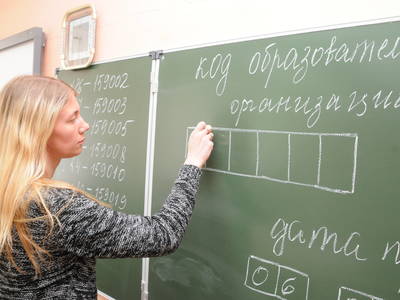 159002
159003
159005
159008
159010
159019
код образовател
организации
дата п
06